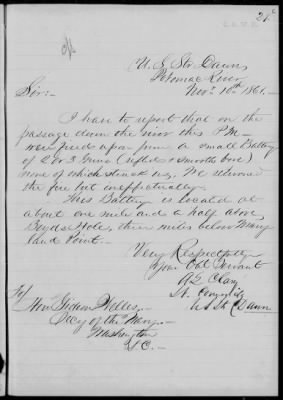 21
U. S. Str. Dawn,
Potomac River,
Nov. 10th 1861.
Sir:
I have to report that on the
passage down the river this P.M.
were fired upon from a small Battery
of 2 or 3 Guns (rifled & smooth bore)
none of which struck us. We returned
the fire but ineffectually.
This Battery is located at
about one mile and a half above
Boyds Hole, three miles below Mary
land Point.
Very Respectfully
Your Obt. Servant
Lt. Comm'dg
U S Str Dawn
To
Hon. Gideon Welles,
Secy of the Navy,
Washington
D.C.